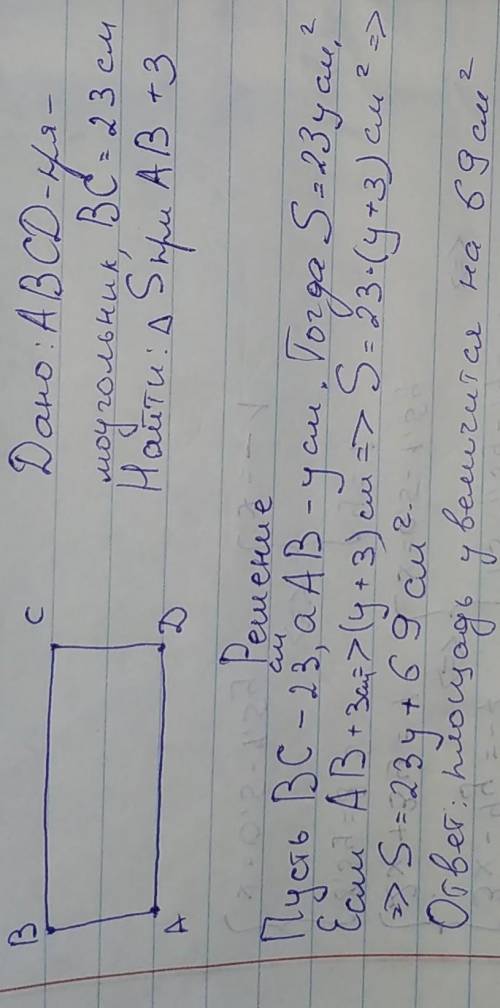 B
C
A
D
Дано: ABCD - пря-
моугольник, BC = 23 см
Найти: △ S при AB + 3
Решение
Пусть BC - 23 см, а AB - y см. Тогда S = 23y см²
Если AB + 3 см => (y + 3) см => S = 23·(y+3) см² =>
=> S = 23y + 69 см².
Ответ: площадь увеличится на 69 см²